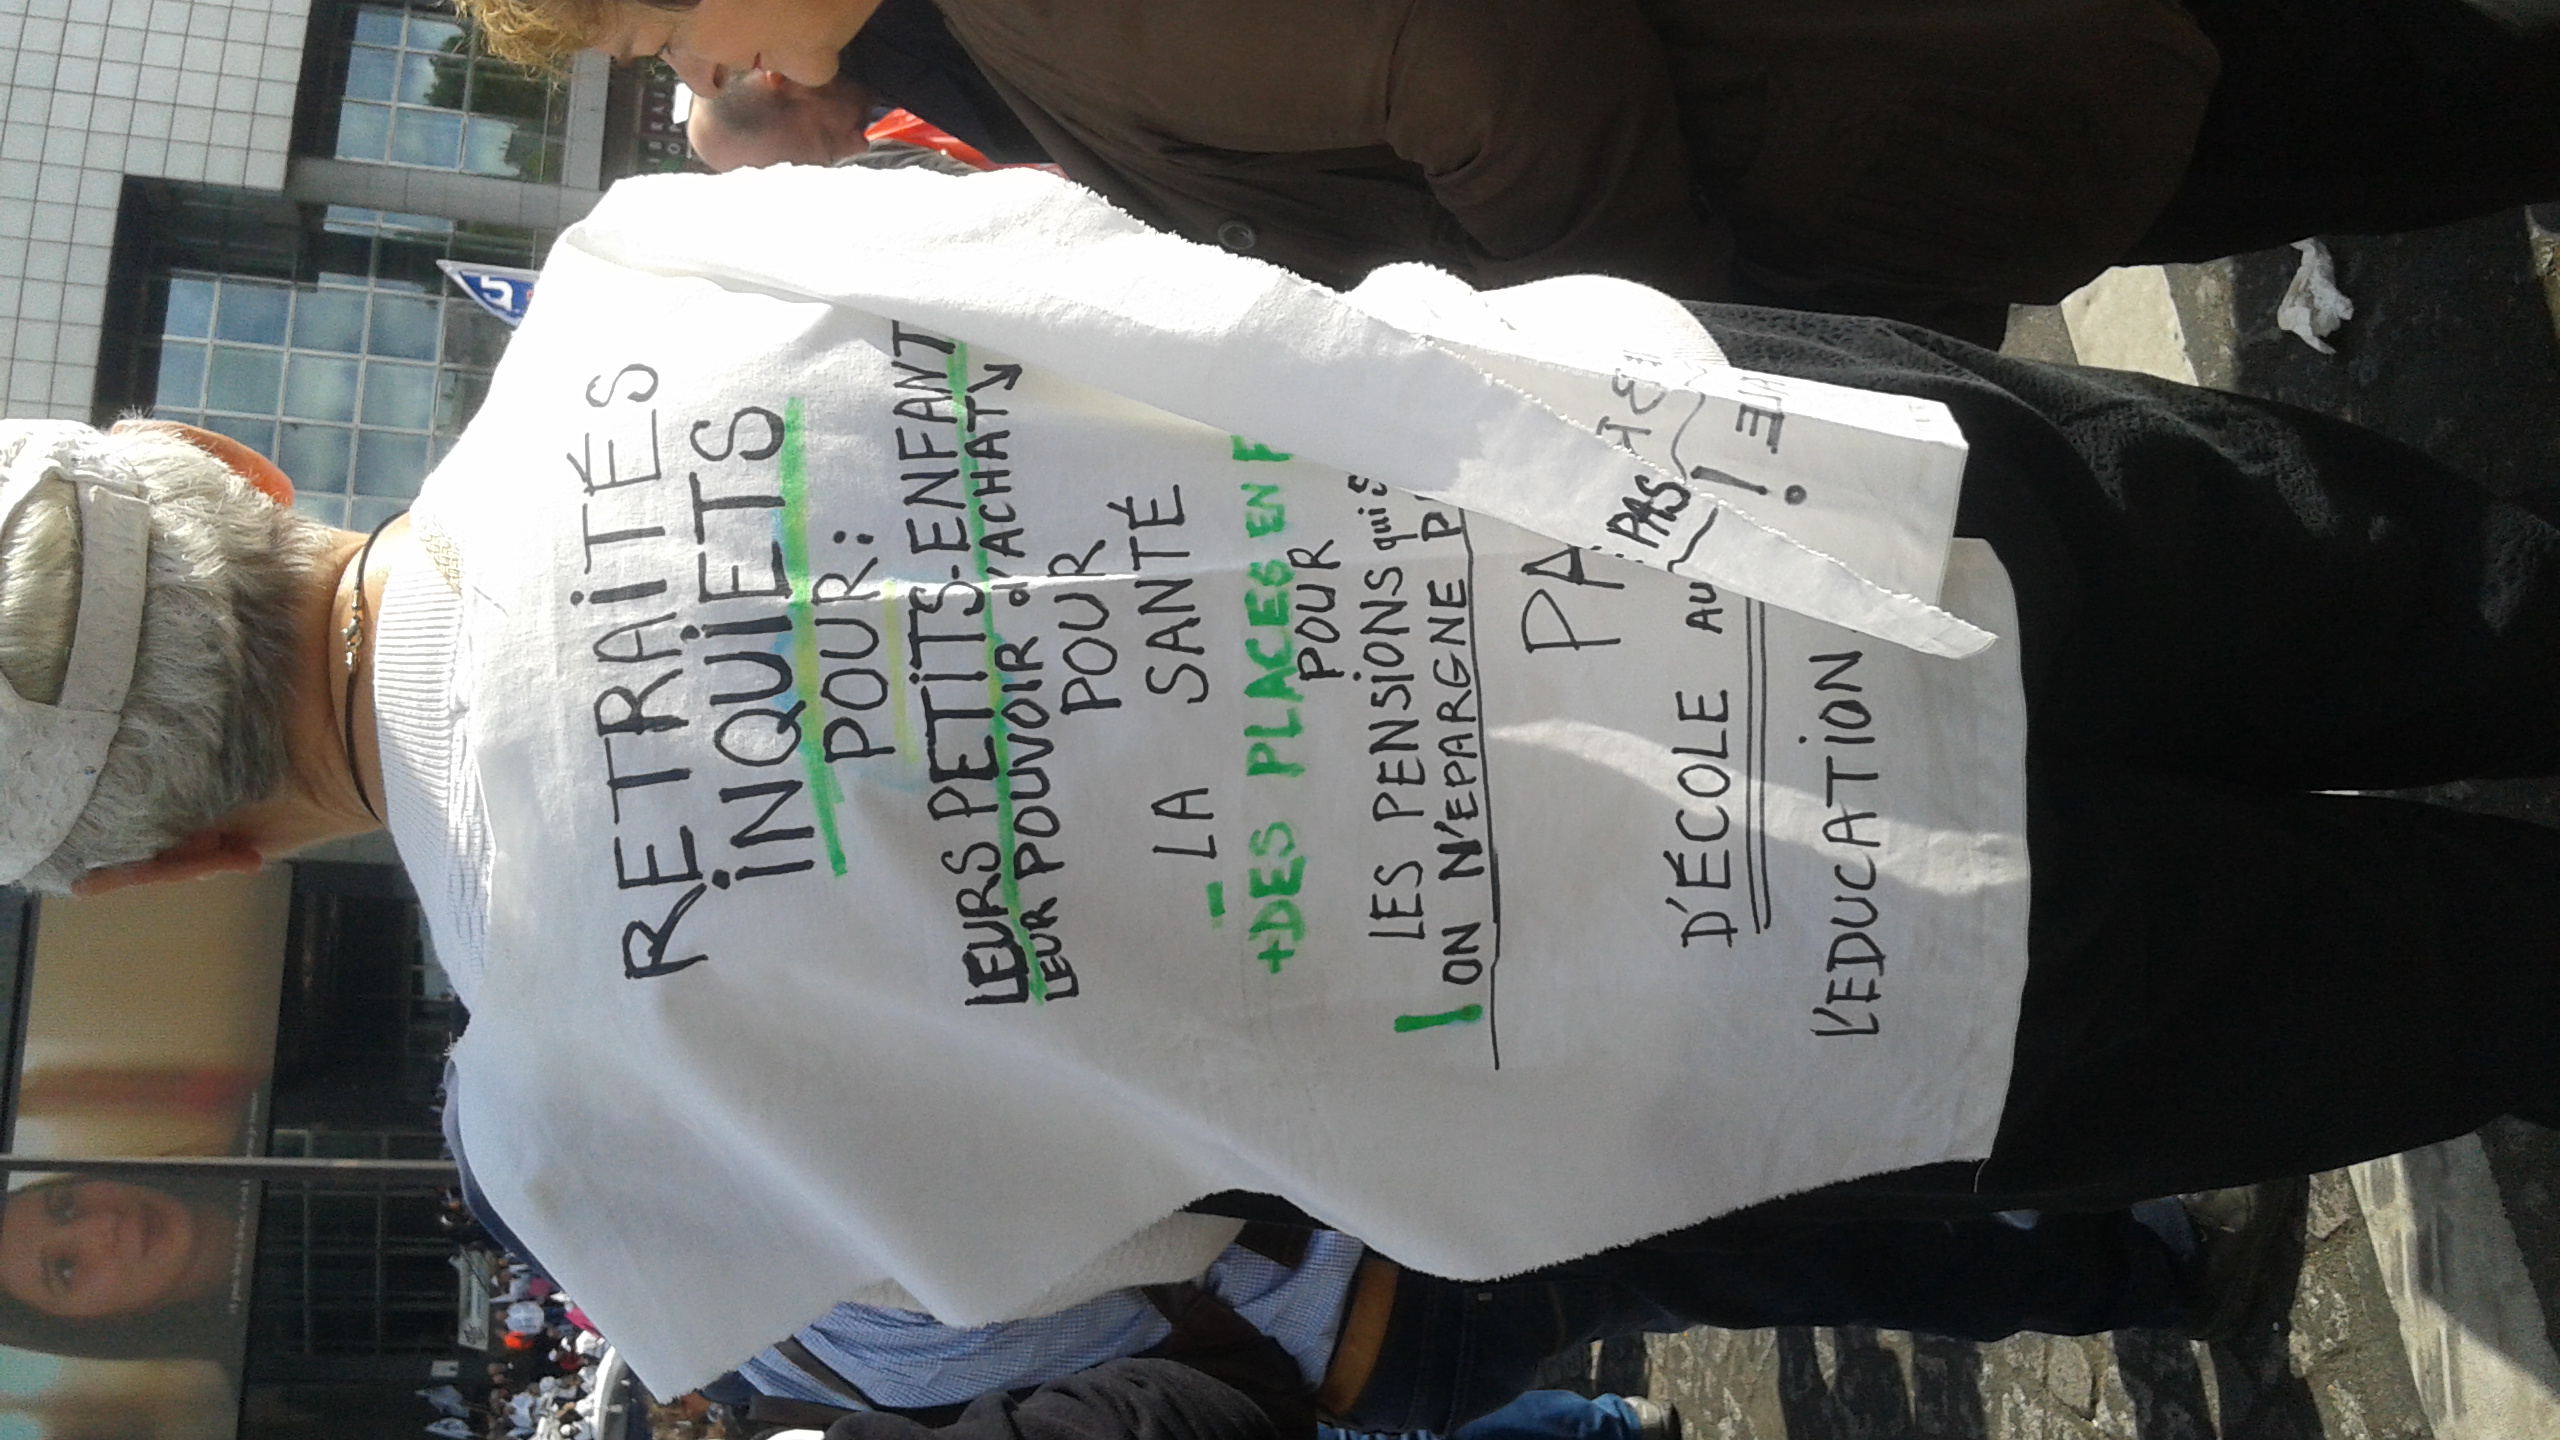 RETRAITÉS
INQUIETS
POUR:
LEURS PETITS-ENFANT
LEUR POUVOIR d'ACHAT
POUR
LA SANTÉ
+DES PLACES EN
POUR
LES PENSIONS qui
ON N'EPARGNE
D'ÉCOLE AU
PAS
L'EDUCATION